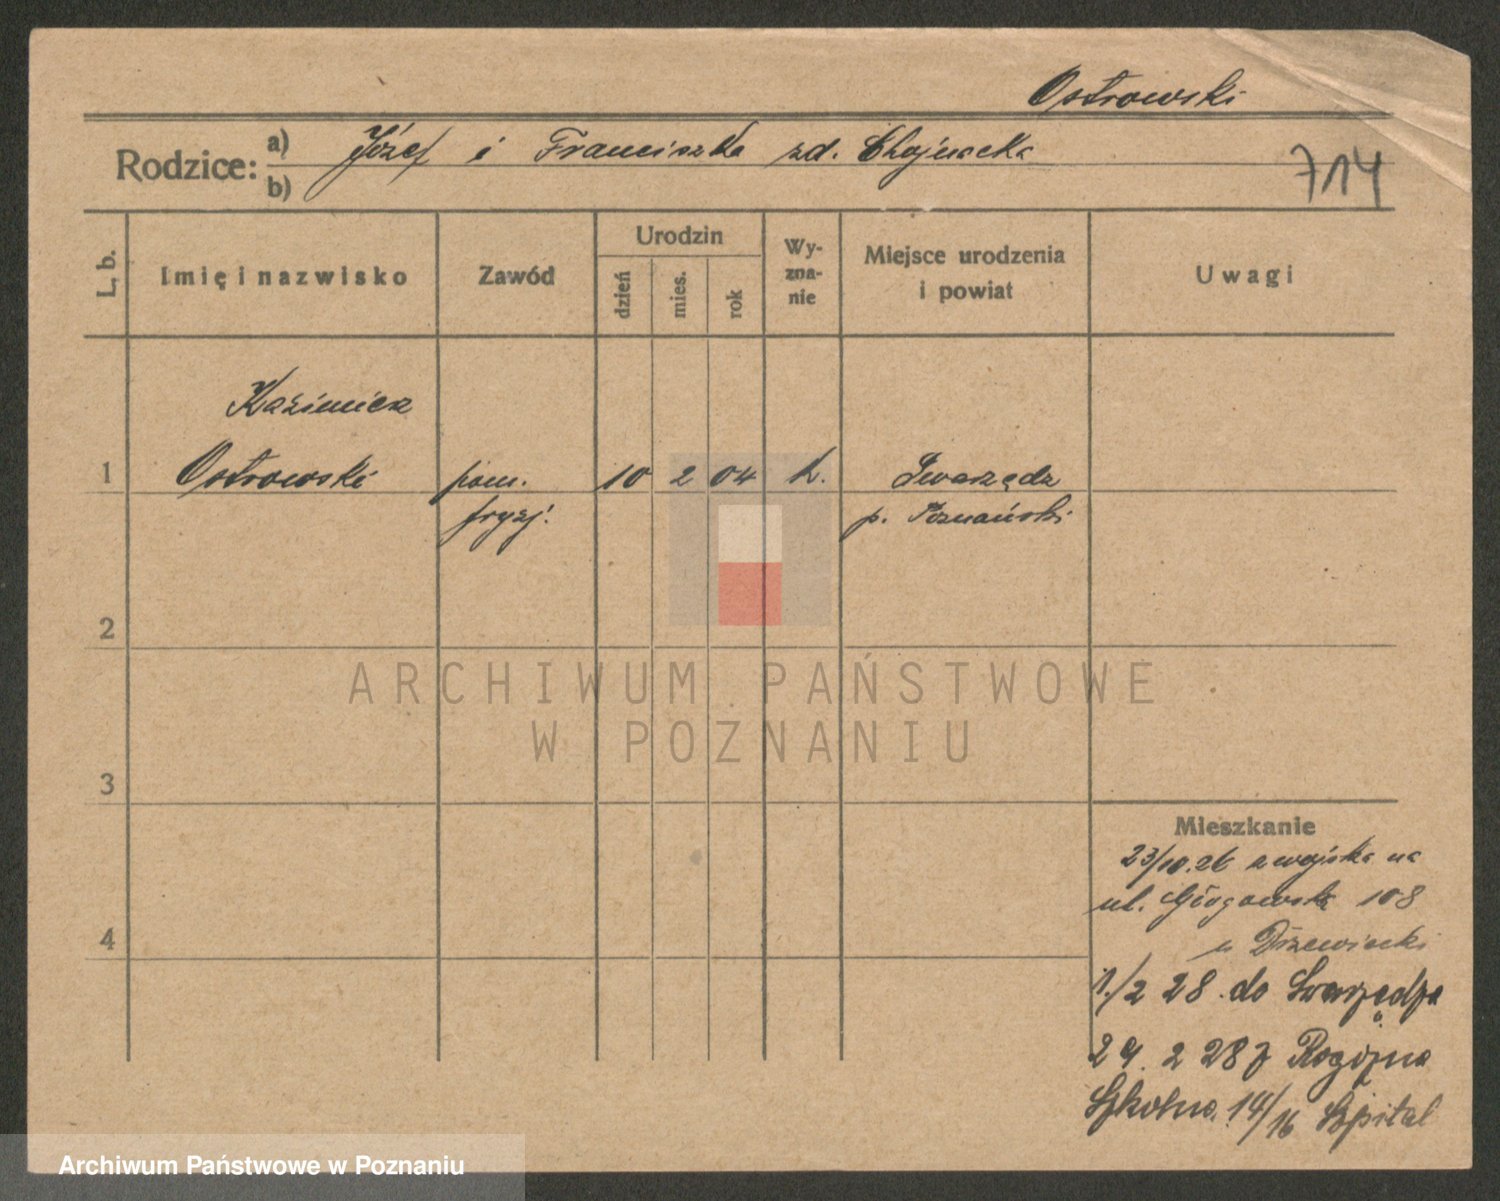 Ostrowski
Rodzice: a) Józef i Franciszka zd. Chojnacka
b)
714
L. b. Imię i nazwisko Zawód Urodzin dzień mies. rok Wy-zna-nie Miejsce urodzenia i powiat Uwagi
Kazimierz
1 Ostrowski pom. 10 2 04 k. Swarzędz
fryzj. p. Poznański
2
ARCHIWUM PAŃSTWOWE
W POZNANIU
3
Mieszkanie
23/10.26 z wojska na
ul. Głogowska 108
4 u Drzewiecki
1./2 28. do Swarzędza
29. 2 28 z Rogoźna
Szkolna 14/16 Szpital
Archiwum Państwowe w Poznaniu